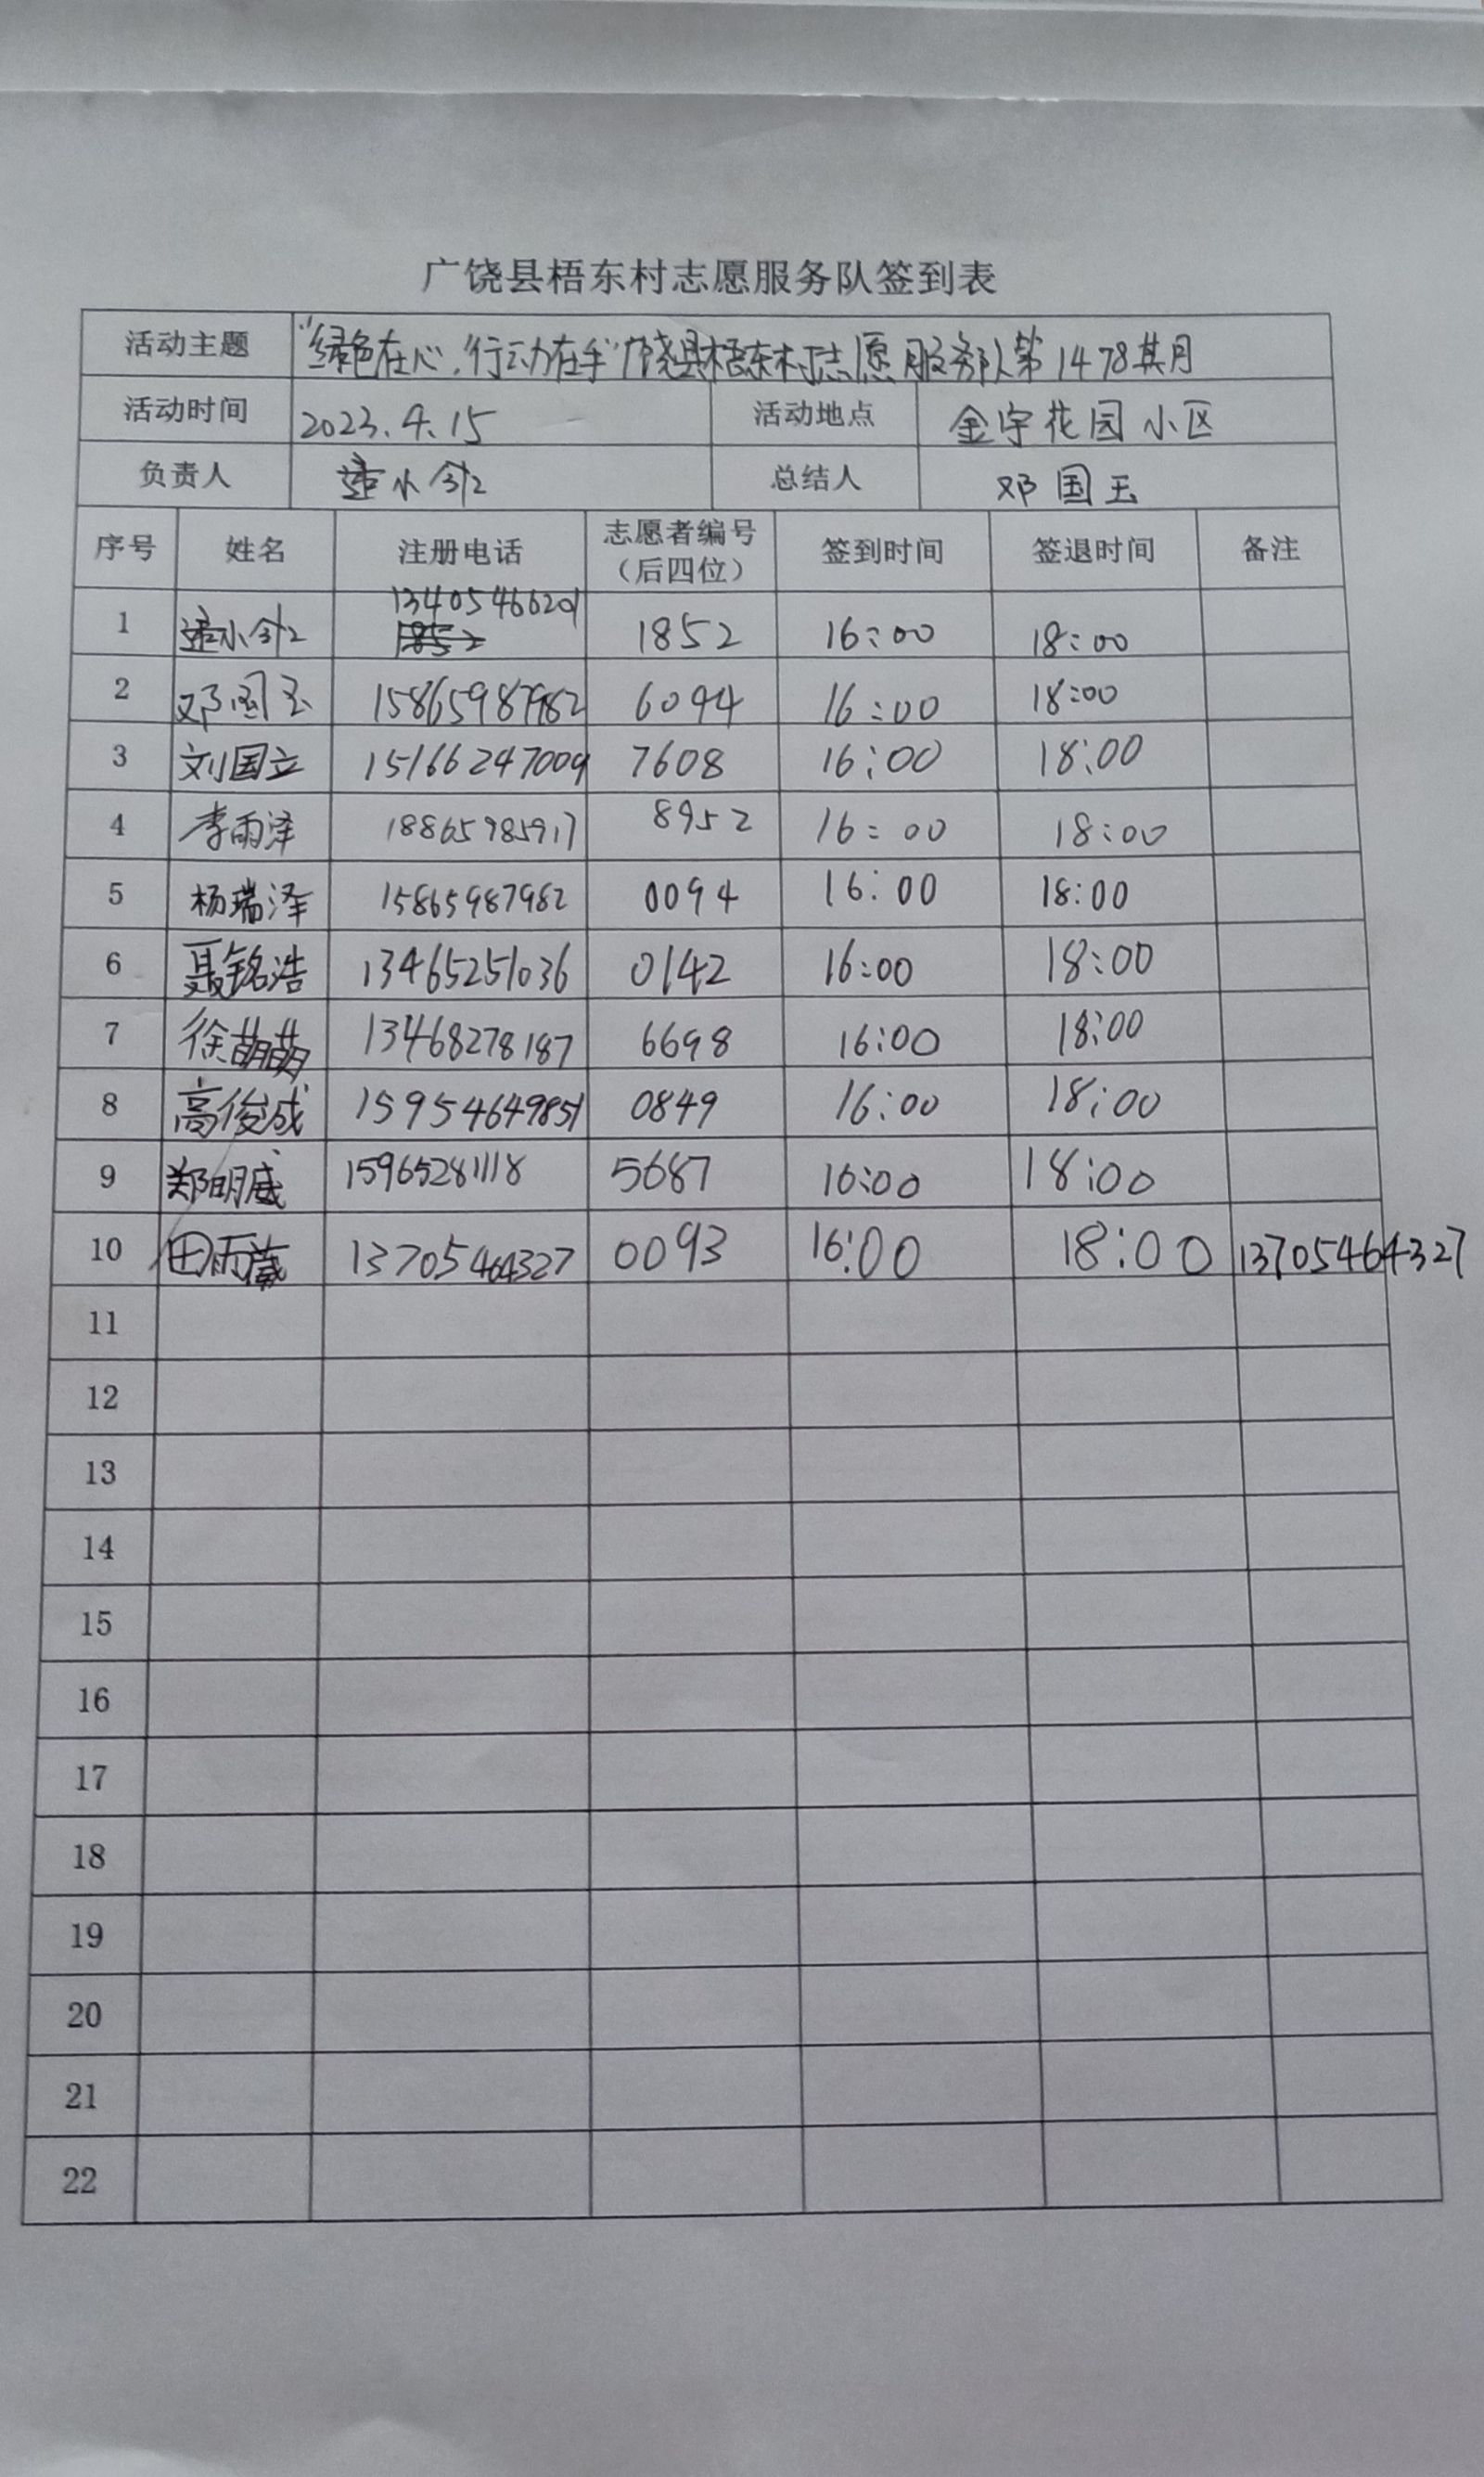 广饶县梧东村志愿服务队签到表
活动主题 "绿色在心,行动在手"广饶县梧东村志愿服务队第1478期
活动时间 2023.4.15 活动地点 金宇花园小区
负责人 小 总结人 邓国玉
序号 姓名 注册电话 志愿者编号（后四位） 签到时间 签退时间 备注
1 小 13405466201 1852 1852 16:00 18:00
2 邓国玉 15865987982 6094 16:00 18:00
3 刘国立 15166247009 7608 16:00 18:00
4 李雨泽 18865985917 8952 16:00 18:00
5 杨瑞泽 15865987982 0094 16:00 18:00
6 聂铭浩 13465251036 0142 16:00 18:00
7 徐萌萌 13468278187 6698 16:00 18:00
8 高俊成 15954649851 0849 16:00 18:00
9 郑明威 15965281118 5687 16:00 18:00
10 田雨葳 13705464327 0093 16:00 18:00 13705464327
11
12
13
14
15
16
17
18
19
20
21
22